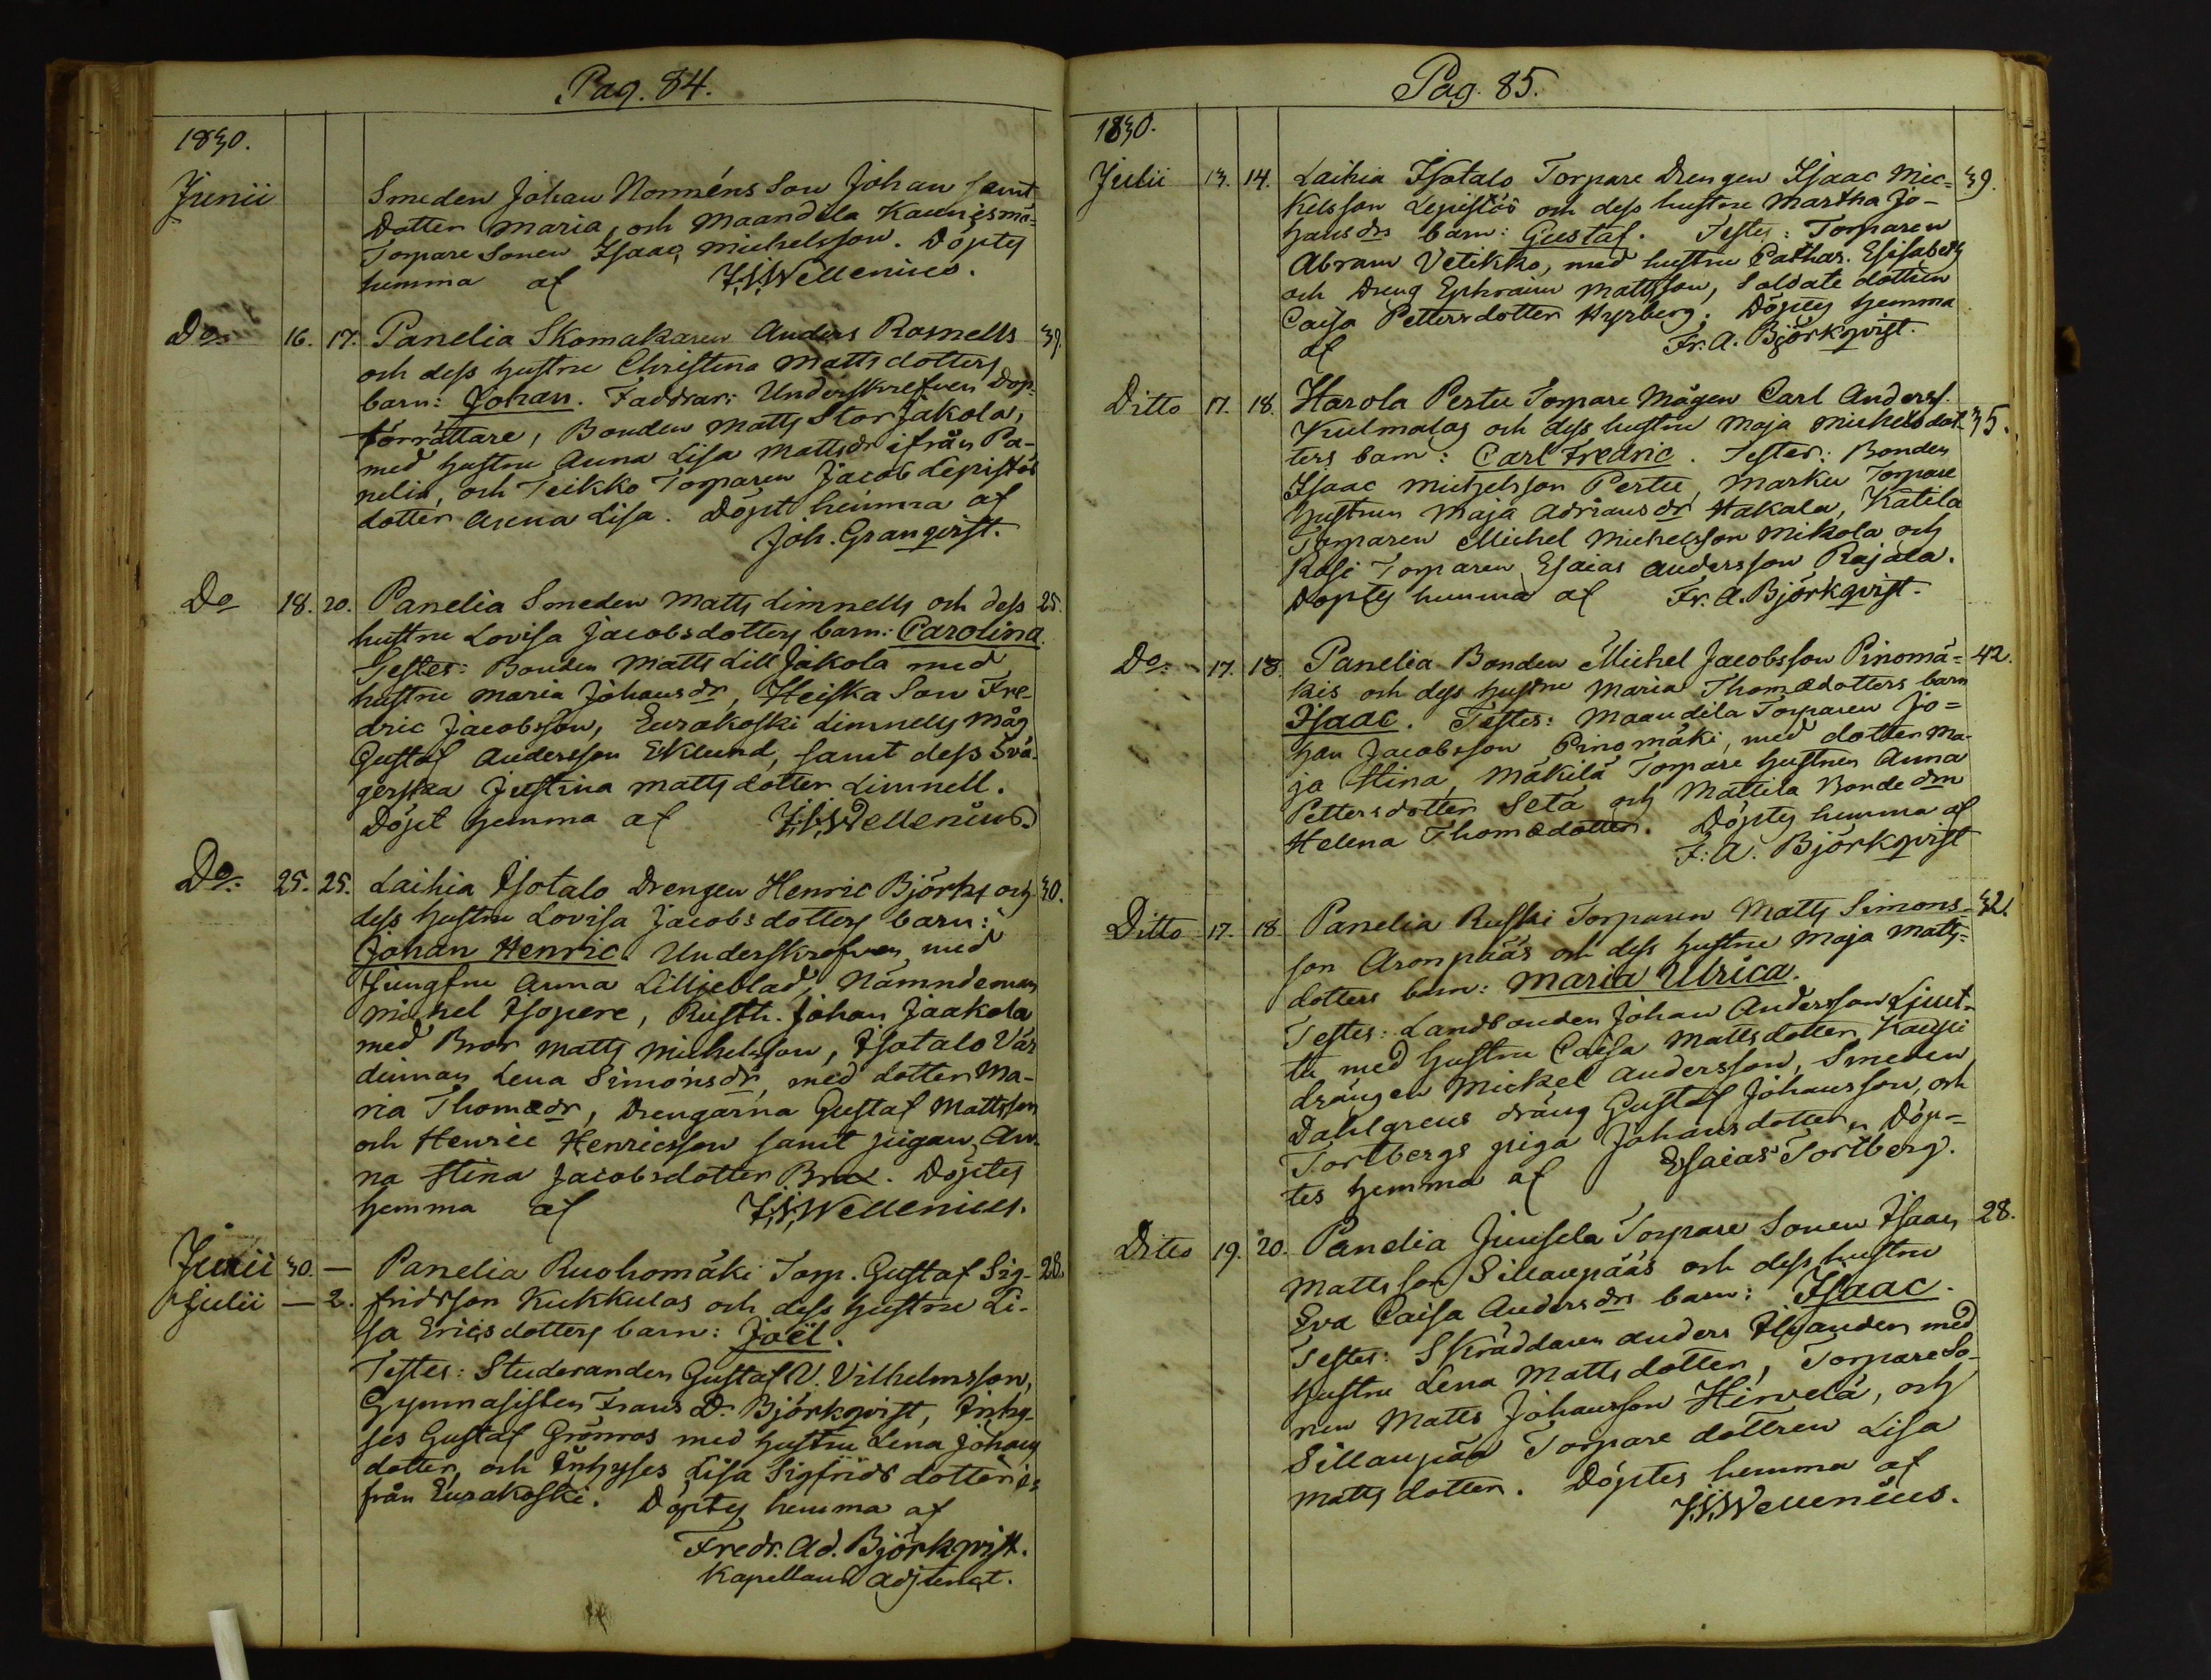 Pag. 84.
1830.
Junii
Smeden Johan Norrméns Son Johan samt
Dotter Maria, och Maandela Kaunismä-
Torpare Sonen Isaac Michelsson. Döptes
hemma af J.S.Wellenius.
Do 16. 17. Panelia Skomakaren Anders Rosnells 39.
och dess hustru Christina Mattsdotters
barn: Johan. Faddrar: Underskrefven Dop-
förrättare, Bonden Matts Stor Jakola,
med hustru Anna Lisa Mattsdr ifrån Pa-
nelia, och Teikko Torparen Jacob Lepistös
dotter Anna Lisa. Döpt hemma af
Joh. Granqvist.
Do 18. 20. Panelia Smeden Matts Limnells och dess 25.
hustru Lovisa Jacobsdotters barn: Carolina.
Testes: Bonden Matts Lill Jakola med
hustru Maria Johansdr, Heiska Son Fre-
dric Jacobsson, Eurakoski Limnells Måg
Gustaf Andersson Eklund, samt dess Svä-
gerska Justina Mattsdotter Limnell.
Döpt hemma af J.S.Wellenius.
Do: 25. 25. Laihia Isotalo Drengen Henric Björks och 30.
dess hustru Lovisa Jacobsdotters barn:
Johan Henric. Underskrefven med
Jungfru Anna Lilljeblad, Nämndeman
Michel Isopere, Rusth. Johan Jaakola
med Bror Matts Michelsson, Isotalo Vär
dinnan Lena Simonsdr, med dotter Ma-
ria Thomædr, Drengarna Gustaf Mattsson
och Henric Henricsson samt pigan An-
na Stina Jacobsdotter Brax. Döptes
hemma af J.S.Wellenius.
Junii 30. — Panelia Ruohomäki Torp. Gustaf Sig- 28.
Julii — 2. fridsson Kukkulas och dess hustru Li-
sa Ericsdotters barn: Joël.
Testes: Studeranden Gustaf V. Vilhelmsson,
Gymnasisten Frans D. Björkqvist, Inhy-
ses Gustaf Grönros med hustru Lena Johans
dotter, och Inhyses Lisa Sigfrids dotter i-
från Eurakoski. Döptes hemma af
Fredr. Ad. Björkqvist.
Kapellans Adjunct.
Pag. 85.
1830.
Julii 13. 14. Laihia Isotalo Torpare Drengen Isaac Mic- 39.
kelsson Lepistös och dess hustru Martha Jo-
hansdrs barn: Gustaf. Testes: Torparen
Abram Vetikko, med hustru Cathar. Elisabeth
och Dreng Ephraim Mattsson, Soldate dottren
Caisa Pettersdotter Hyrberg. Döptes hemma
af Fr. A. Björkqvist.
Ditto 17. 18. Harola Pertu Torpare Mågen Carl Anderss.
Kulmalas och dess hustru Maja Michelsdot- 35.
ters barn: Carl Fredric. Testes: Bonden
Isaac Michelsson Pertu, Marku Torpare
hustrun Maja Adriansdr Hakala, Katila
Torparen Michel Michelsson Mikola och
Kasi Torparen Esaias Andersson Rajala.
Döptes hemma af Fr. A. Björkqvist.
Do: 17. 18. Panelia Bonden Michel Jacobsson Pinomä- 42.
kis och dess hustru Maria Thomædotters barn
Isaac. Testes: Maandila Torparen Jo-
han Jacobsson Pinomäki, med dotter Ma-
ja Stina, Mäkilä Torpare hustrun Anna
Pettersdotter Setä och Mattila Bonde drn
Helena Thomædotter. Döptes hemma af
F: A. Björkqvist
Ditto 17. 18 Panelia Ruski Torparen Matts Simons- 32.
son Aronpääs och dess hustru Maja Matts-
dotters barn: Maria Ulrica.
Testes: Landbonden Johan Andersson Ljuut-
tu med hustru Caisa Mattsdotter, Kauppi
drängen Mickel Andersson, Smeden
Dahlgrens dräng Gustaf Johansson, och
Tortbergs piga Johansdotter. Döp-
tes hemma af Esaias Tortberg.
Ditto 19. 20. Panelia Juusela Torpare Sonen Isaac 28.
Mattsson Sillanpääs och dess hustru
Eva Caisa Andersdrs barn: Isaac.
Testes: Skräddaren Anders Ilvanden med
hustru Lena Mattsdotter, Torpare So-
nen Matts Johansson Hirvelä, och
Sillanpää Torpare dottren Lisa
Mattsdotter. Döptes hemma af
J.S.Wellenius.